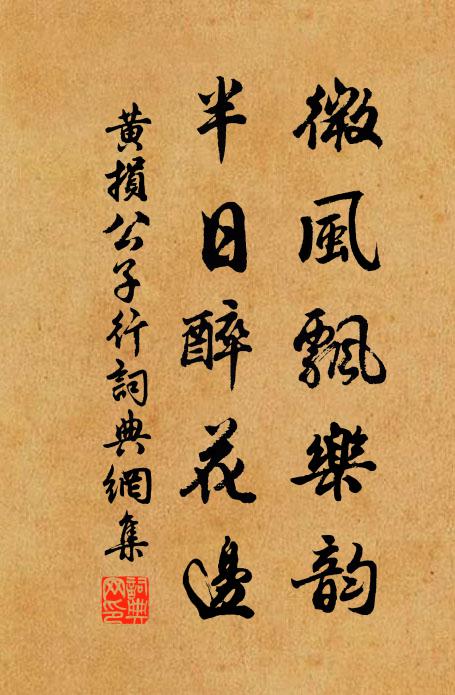 微風飄樂韵
半日醉花邊
黃損公子行詞典網集
詞典网印